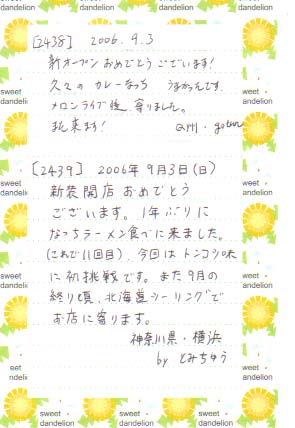 sweet dandelion
sweet dandelion
sweet dandelion
[2438] 2006.9.3
新オープンおめでとうございます!
久々のカレーなっち うまかったです。
メロンライブ後、寄りました。
又来ます!
[2439] 2006年9月3日(日)
新装開店おめでとう
ございます。1年ぶりに
なっちラーメン食べに来ました。
(これで11回目)今回はトンコツ味
に初挑戦です。また9月の
終り頃、北海道ツーリングで
お店に寄ります。
神奈川県・横浜
by とみちゅう
sweet dandelion
sweet dandelion
sweet dandelion